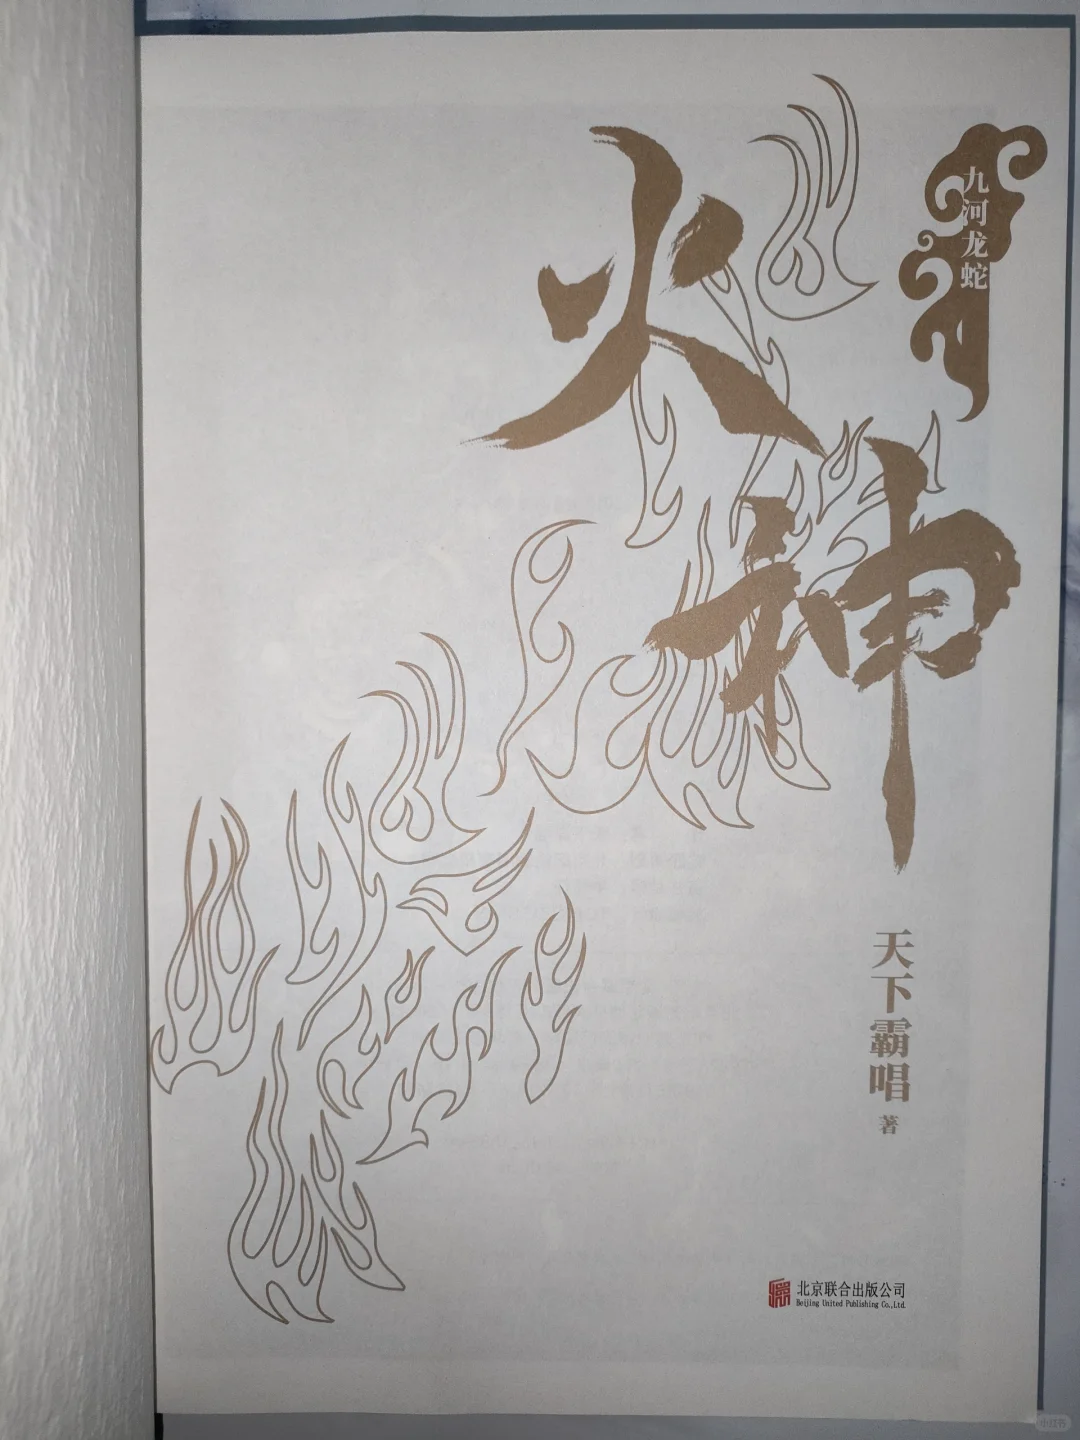 九河龙蛇
火神
天下霸唱
著
北京联合出版公司
Beijing United Publishing Co.,Ltd.
小红书